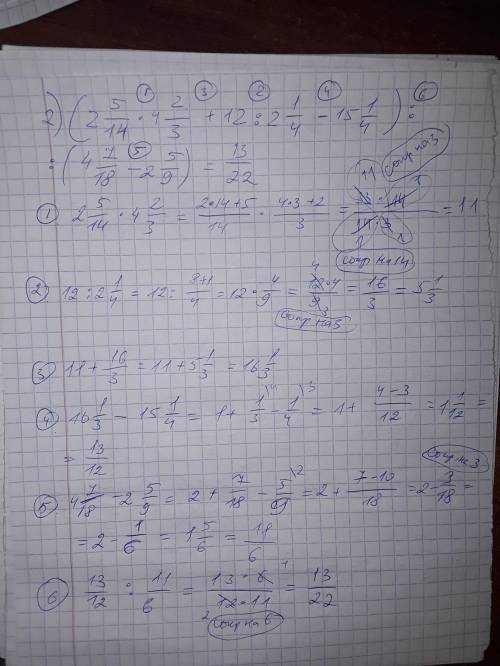 2) (2 5/14 · 4 2/3 + 12 : 2 1/4 − 15 1/4) :
: (4 7/18 − 2 5/9) = 13/22
① 2 5/14 · 4 2/3 = (2·14+5)/14 · (4·3+2)/3 = = 11
сокр на 3
сокр на 14
② 12 : 2 1/4 = 12 : (8+1)/4 = 12 · 4/9 = (12·4)/9 = 16/3 = 5 1/3
③ 11 + 16/3 = 11 + 5 1/3 = 16 1/3
④ 16 1/3 − 15 1/4 = 1 + 1/3 − 1/4 = 1 + (4−3)/12 = 1 1/12 =
= 13/12
сокр на 3
⑤ 4 7/18 − 2 5/9 = 2 + 7/18 − 5/9 = 2 + (7−10)/18 = 2 − 3/18 =
= 2 − 1/6 = 1 5/6 = 11/6
⑥ 13/12 : 11/6 = (13·6)/(12·11) = 13/22
сокр на 6